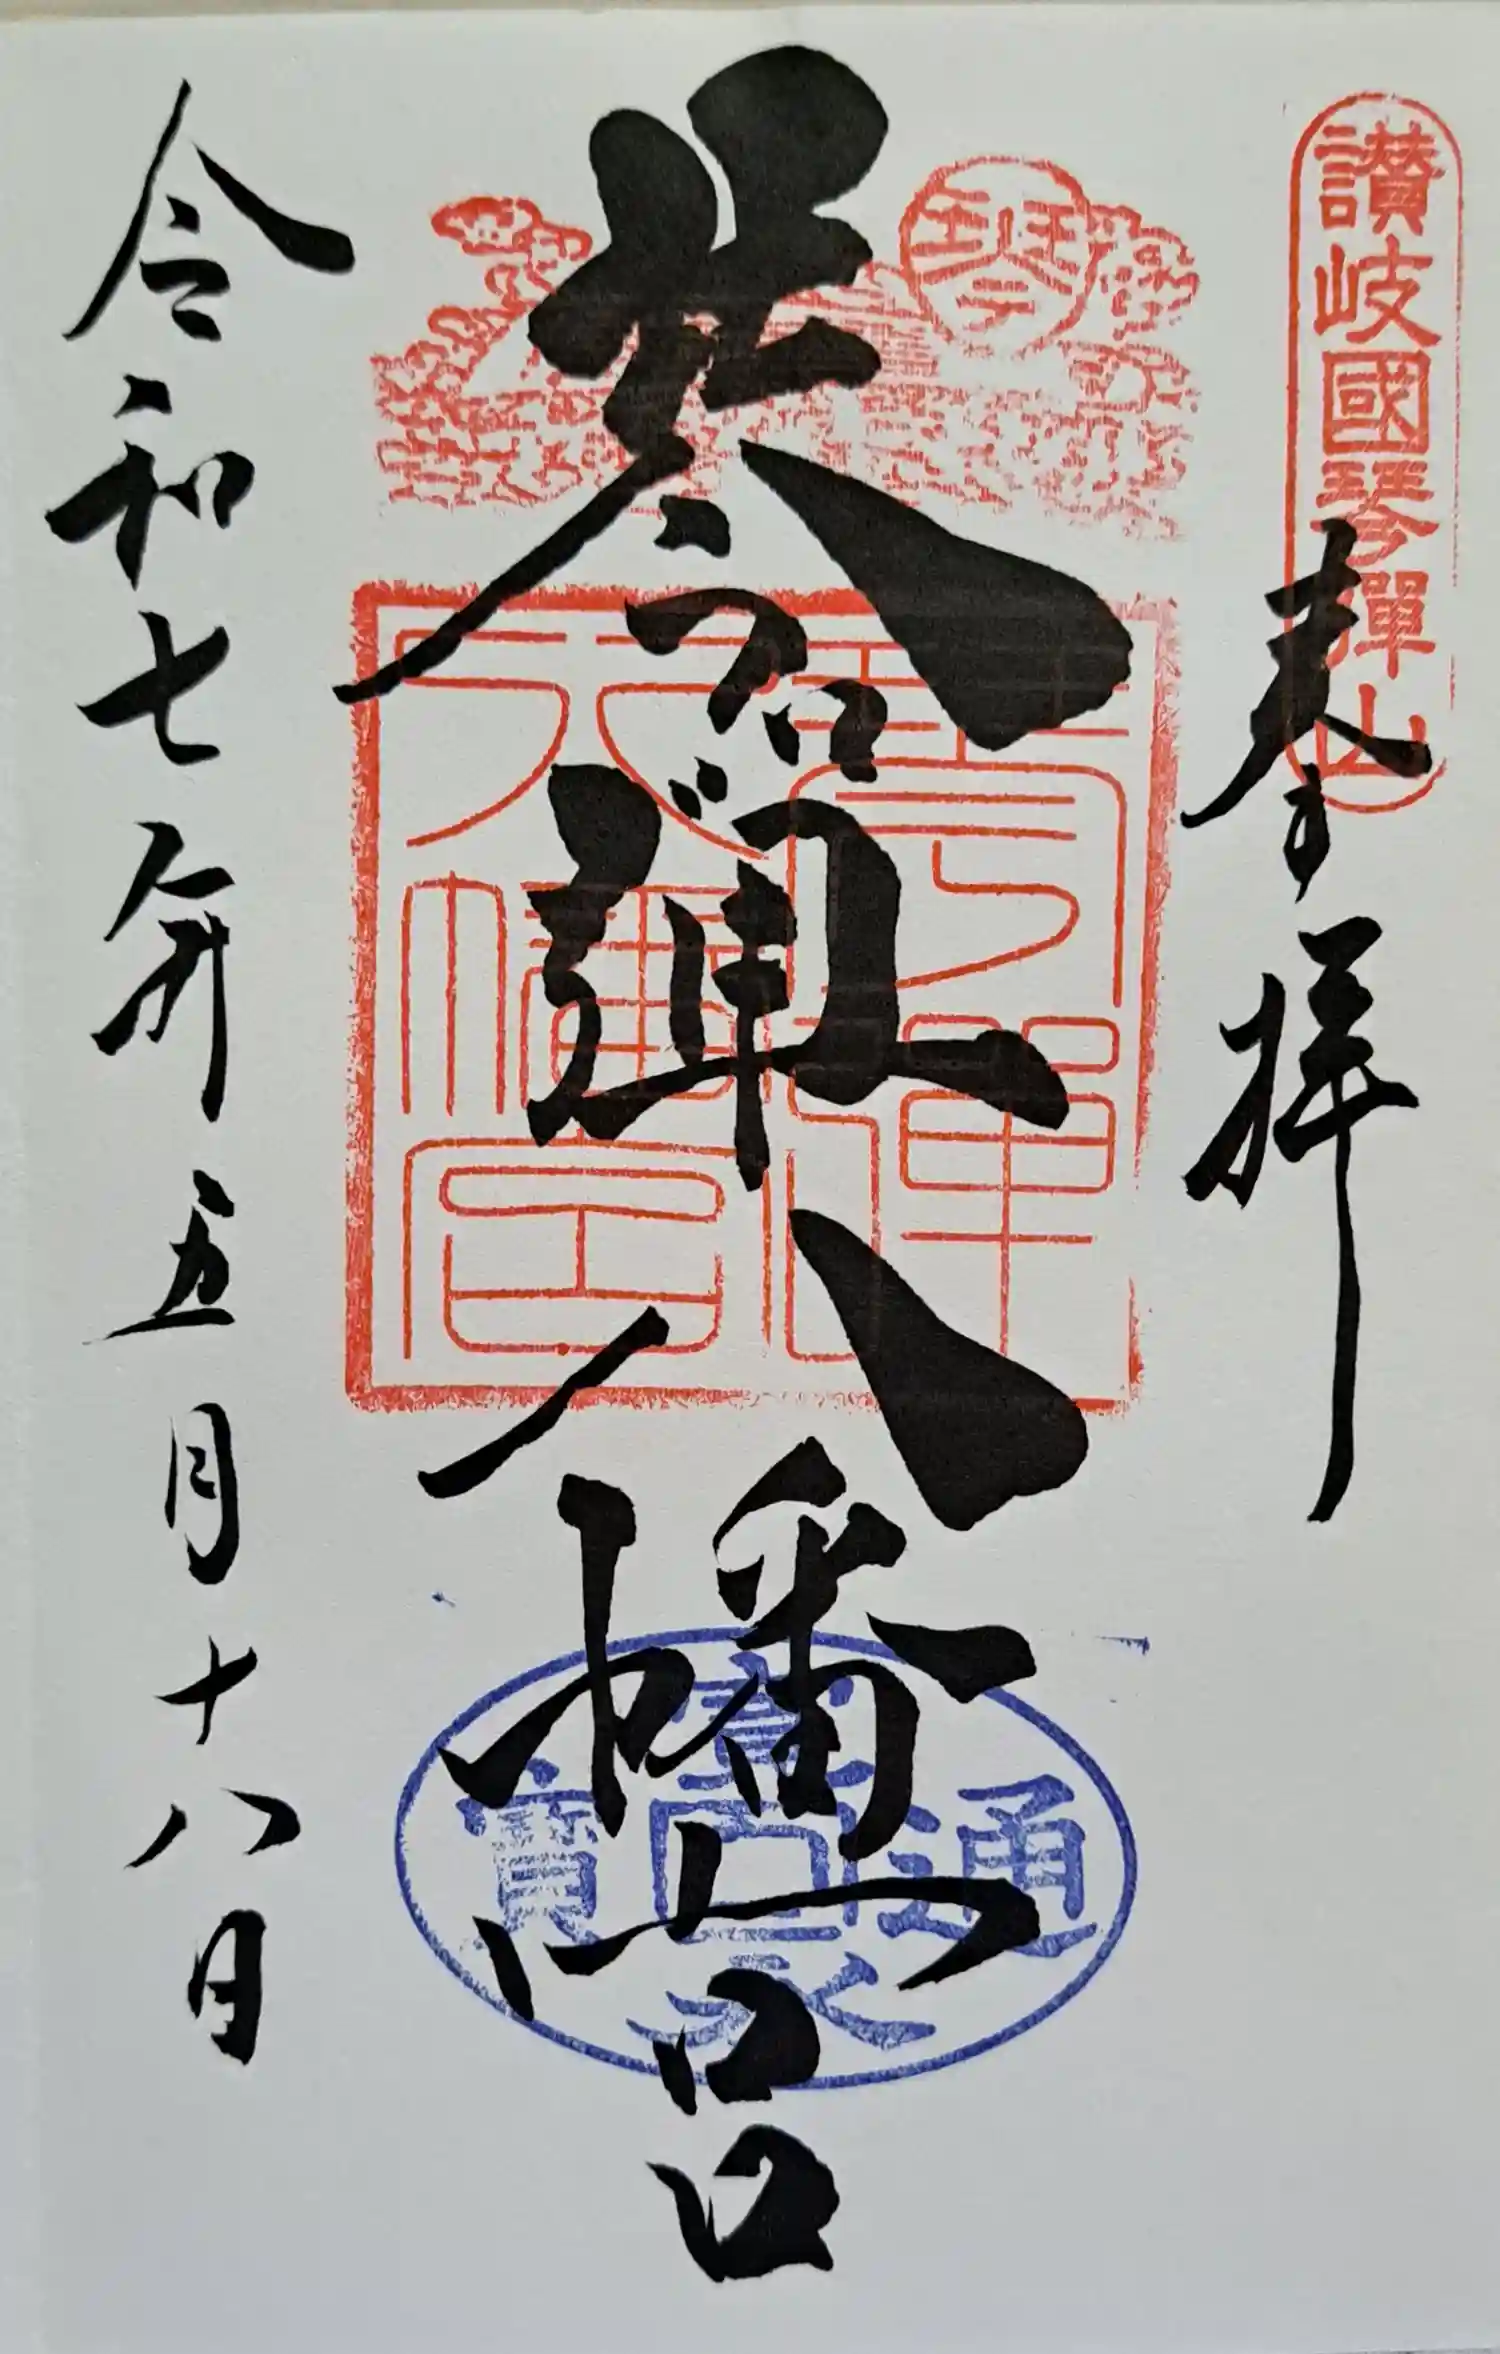 讃岐國琴彈山
奉拝
琴
琴彈八幡宮
琴彈八幡宮
寛永通寳
令和七年五月十八日